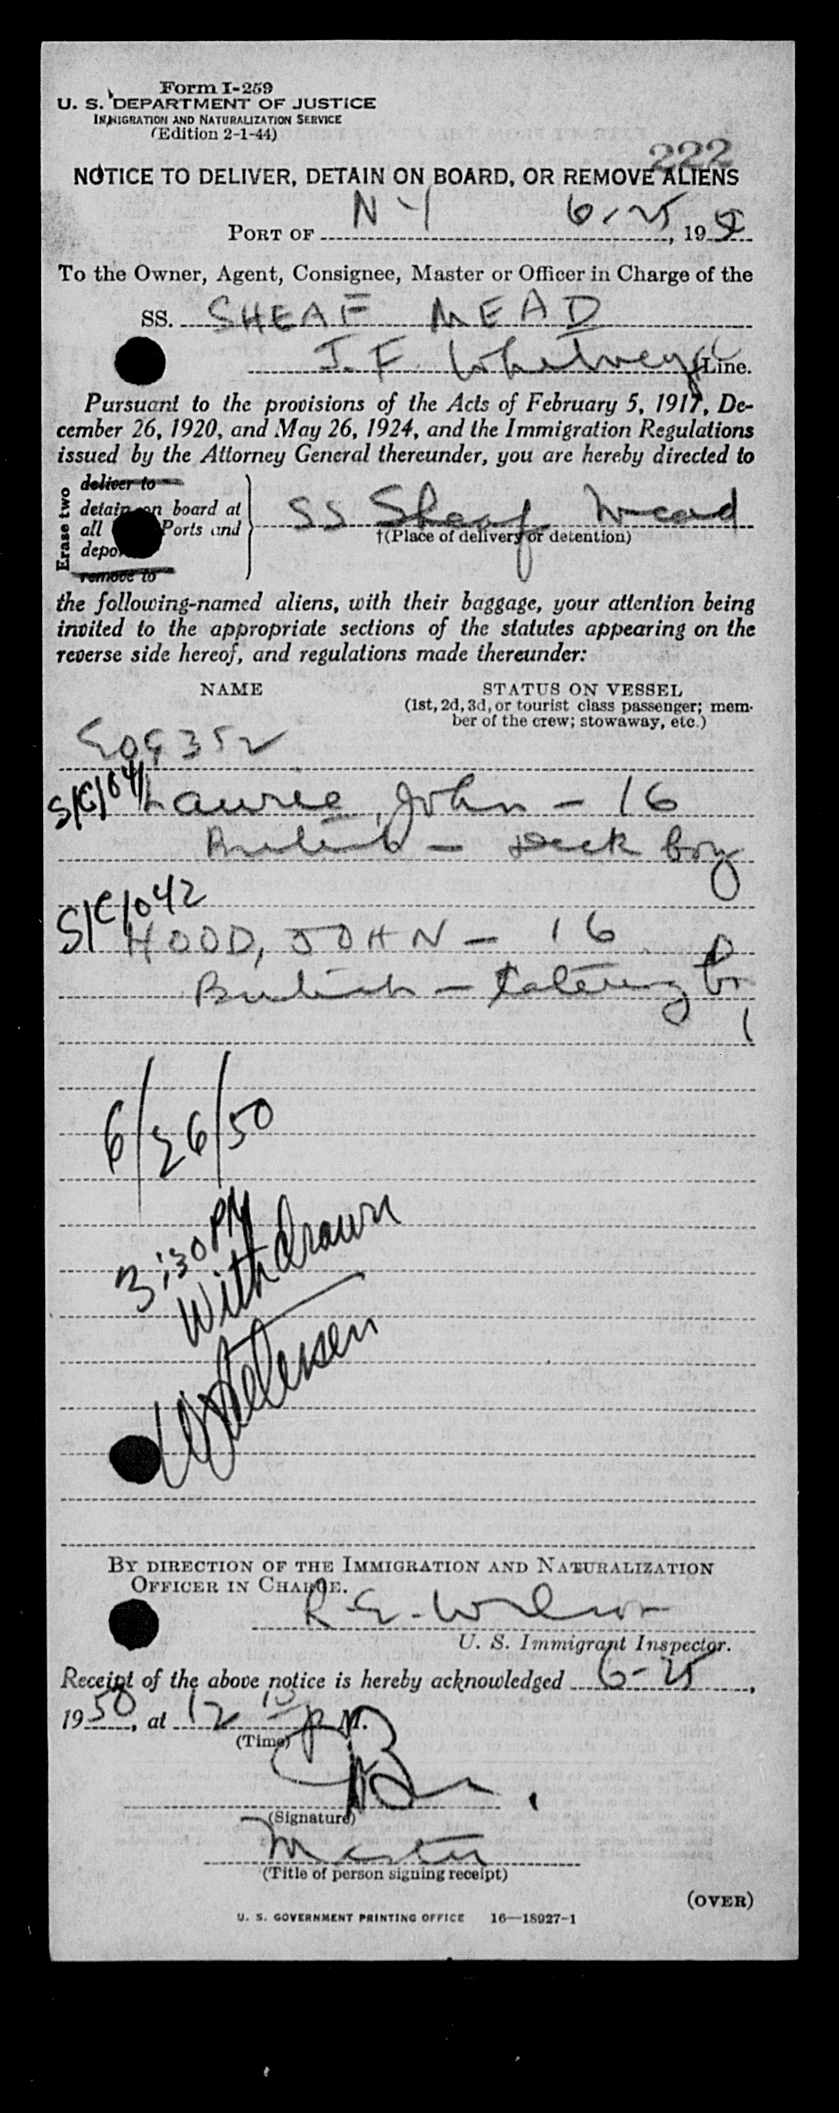 Form I-259
U. S. DEPARTMENT OF JUSTICE
IMMIGRATION AND NATURALIZATION SERVICE
(Edition 2-1-44)
222
NOTICE TO DELIVER, DETAIN ON BOARD, OR REMOVE ALIENS
PORT OF NY 6-25, 195
To the Owner, Agent, Consignee, Master or Officer in Charge of the
SS. SHEAF MEAD
J. F. Whitney Line.
Pursuant to the provisions of the Acts of February 5, 1917, De-
cember 26, 1920, and May 26, 1924, and the Immigration Regulations
issued by the Attorney General thereunder, you are hereby directed to
Erase two
deliver to
detain on board at
all Ports and
depo
remove to
SS Sheaf Mead
†(Place of delivery or detention)
the following-named aliens, with their baggage, your attention being
invited to the appropriate sections of the statutes appearing on the
reverse side hereof, and regulations made thereunder:
NAME STATUS ON VESSEL
(1st, 2d, 3d, or tourist class passenger; mem-
ber of the crew; stowaway, etc.)
S/C/041 Laurie, John - 16
British - Deck boy
S/C/042
HOOD, JOHN - 16
British - Catering boy
6/26/50
3:30 PM
Withdrawn
Petersen
BY DIRECTION OF THE IMMIGRATION AND NATURALIZATION
OFFICER IN CHARGE.
R. E. Wilson
U. S. Immigrant Inspector.
Receipt of the above notice is hereby acknowledged 6-25,
1950, at 12 10 P M.
(Time)
(Signature)
Master
(Title of person signing receipt)
(OVER)
U. S. GOVERNMENT PRINTING OFFICE 16—18927-1